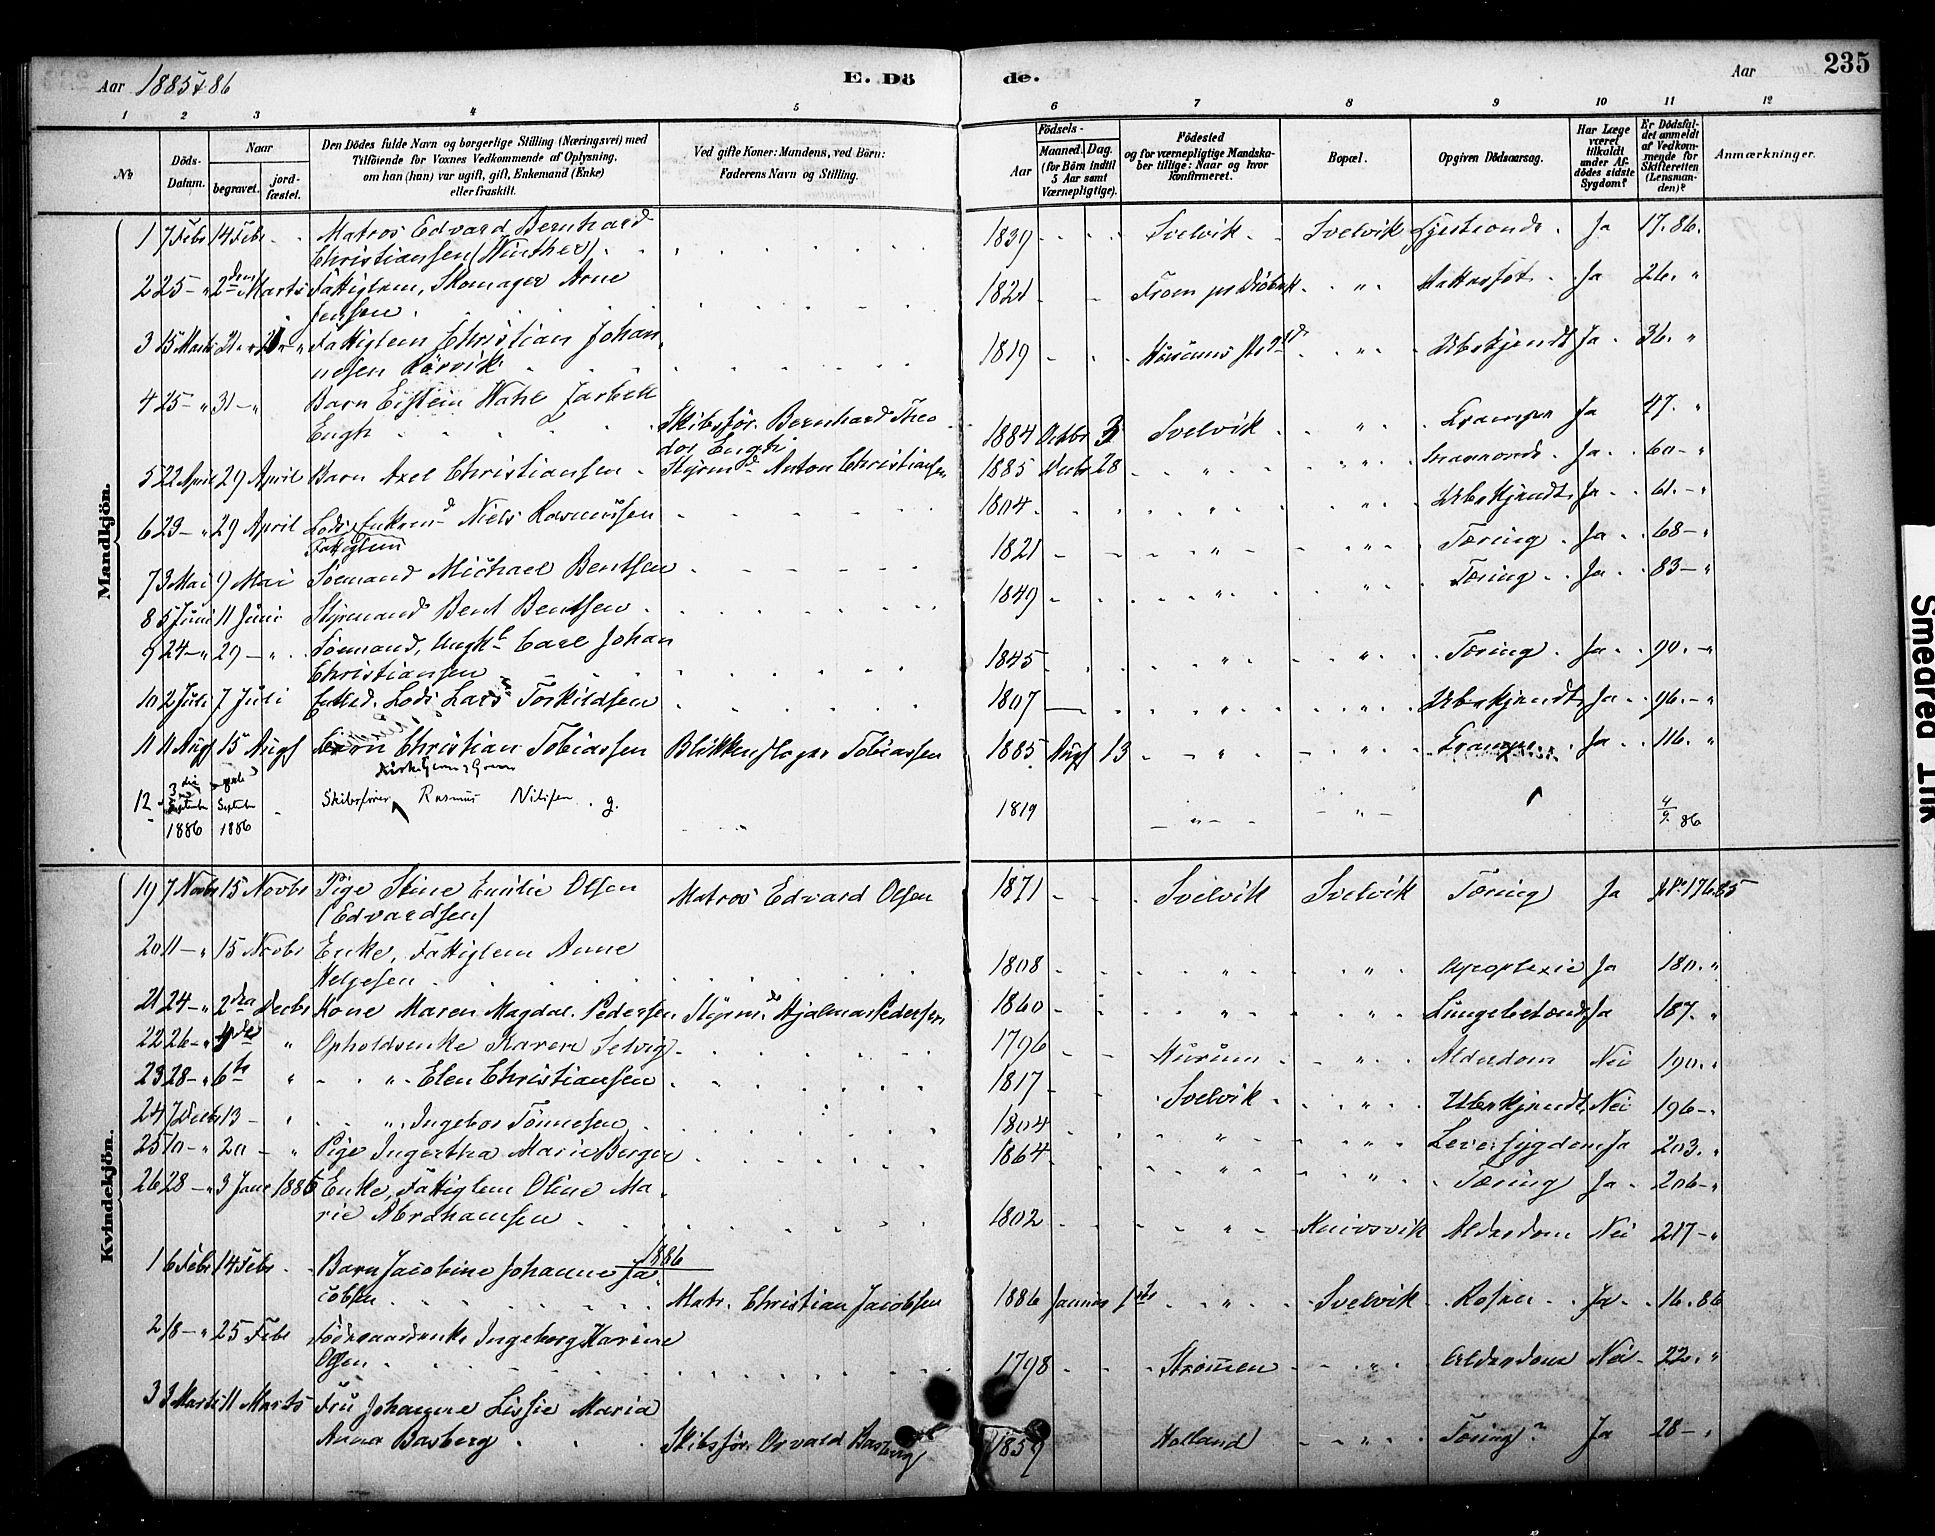 Aar 1885 & 86 E. Dö de. Aar 235
1 2 3 4 5 6 7 8 9 10 11 12
No Döds-Datum. Naar begravet. jord-fæstet. Den Dödes fulde Navn og borgerlige Stilling (Næringsvei) med Tilföiende for Voxnes Vedkommende af Oplysning. om han (hun) var ugift, gift, Enkemand (Enke) eller fraskilt. Ved gifte Koner: Mandens, ved Börn: Faderens Navn og Stilling. Födsels- Aar Maaned. Dag. (for Börn indtil 5 Aar samt Værnepligtige). Födested og for værnepligtige Mandskaber tillige: Naar og hvor konfirmeret. Bopæl. Opgiven Dödsaarsag. Har Læge været tilkaldt under Afdödes sidste Sygdom? Er Dödsfaldet anmeldt af Vedkommende for Skifteretten (Lensmanden)? Anmærkninger.
Mandkjön.
1 7 Febr 14 Febr. Matros Edvard Bernhard 1839 Svelvik Svelvik Ja 17. 86.
Christiansen (Winther)
2 25 - " 2den Marts Fattiglem, Skomager Arne 1821 Froen pr Dröbak " Ja 26. "
Jensen
3 15 Marts 21 - " Fattiglem Christian Johan 1819 " Ubekjendt Ja 36. "
nesen Rörvik
4 25 - " 31 - " Barn Eistein Wahl Jarbek
Engh Skibsför. Bernhard Theo 1884 Octbr 3 Svelvik " Krampe Ja 47. "
dor Engh
5 22 April 29 April Barn Axel Christiansen Styrmd Anton Christiansen 1885 Decbr 28 " " Ja 60 - "
6 23 - " 29 April Lods Enkemd Niels Rasmussen 1804 " " Ubekjendt Ja 61. - "
Fattiglem
7 3 Mai 9 Mai Sömand Michael Bentsen 1821 " " Tæring Ja 68 - "
8 5 Juni 11 Juni Styrmand Bent Bentsen 1849 " " Tæring Ja 83 - "
9 24 - " 29 - " Sömand, Ungk. Carl Johan 1845 " " Tæring Ja 90. - "
Christiansen
10 2 Juli 7 Juli Enked. Lods Lars Torkildsen 1807 " " Ubekjendt Ja 96. - "
11 11 Augs 15 Augs Barn Christian Tobiassen Blikkenslager Tobiassen 1885 Augs 13 " " Krampe Ja 116. "
12 3die September 1886 September 1886 Skibsförer Rasmus Nilssen g. 1819 " " 4/9 86
Kvindekjön.
19 7 Novbr 15 Novbr Pige Stine Emilie Olsen Matros Edvard Olsen 1871 Svelvik Svelvik Tæring Ja 176 85
(Edvardsen)
20 11 - " 15 Novbr Enke, Fattiglem Anne
Helgesen 1808 " " Apoplexie Ja 180. "
21 24 - " 2den Decbr Kone Maren Magdal. Pedersen Styrmd Hjalmar Pedersen 1860 " " Lungebetænd. Ja 187. "
22 26 - " 4de " Opholdsenke Karen Selvig 1796 Hurum " Alderdom Nei 190. "
23 28 - " 6te " " Elen Christiansen 1817 Svelvik " Ubekjendt Nei 196 - "
24 7 Decbr 13 - " " Ingebor Tönnesen 1804 " " Leversygdom Ja 203. "
25 10 - " 20 - " Pige Ingertha Marie Berger 1864 " " Tæring Ja 206 - "
26 28 - " 3 Janr 1886 Enke, Fattiglem Oline Ma
rie Abrahamsen 1802 " Knivsvik Alderdom Nei 217 - "
1886
1 6 Febr 14 Febr. Barn Jacobine Johanne Ja
cobsen Matr. Christian Jacobsen 1886 Januar 1ste " Svelvik Rosen Ja 16. 86
2 18 - " 25 Febr Födraadsenke Ingeborg Karine
Olsen 1798 Strömmen " Alderdom Nei 22. "
3 3 Marts 11 Marts Fru Johanne Lissie Maria
Anna Basberg Skibsför. Osvald Basberg 1859 Holland " Tæring? Ja 28 - "
Smedred Tlik